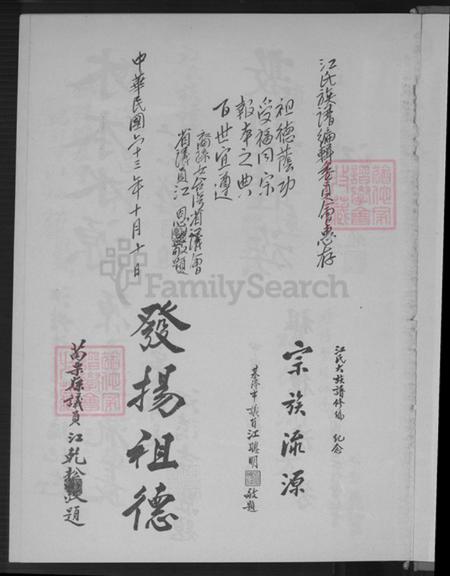 江氏族譜編輯委員會惠存
祖德蔭功
受福同宗
報本之典
百世宜遵
裔孫女台灣省議會
省議員江恩敬題
中華民國六十三年十月十日
江氏大族譜修編 紀念
宗族流源
基隆市議員江聰明敬題
發揚祖德
苗栗縣議員江乾松題
FamilySearch